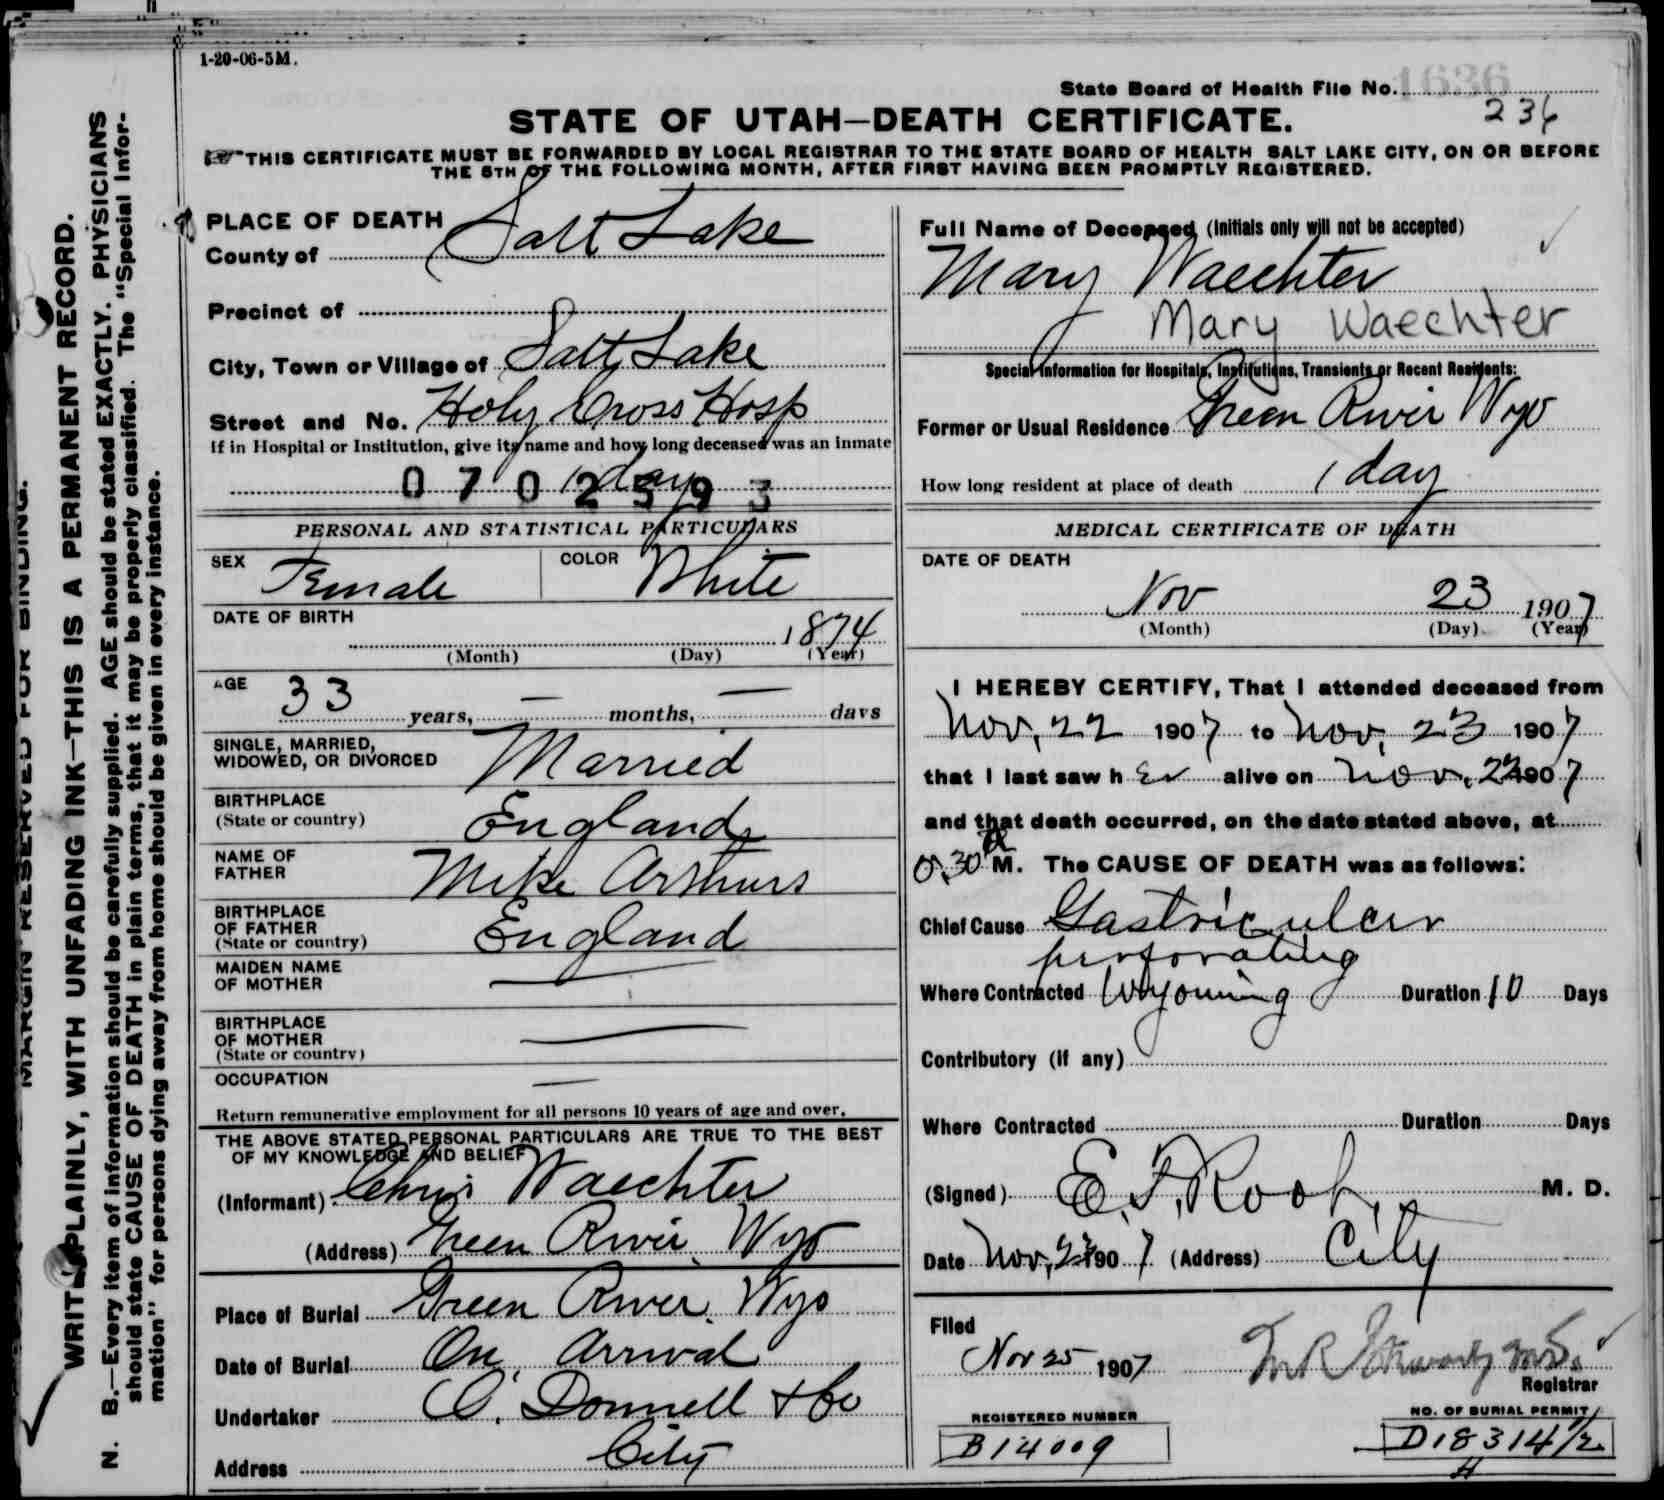 1-20-06-5M.
State Board of Health File No. 1636
236
STATE OF UTAH—DEATH CERTIFICATE.
THIS CERTIFICATE MUST BE FORWARDED BY LOCAL REGISTRAR TO THE STATE BOARD OF HEALTH SALT LAKE CITY, ON OR BEFORE
THE 5TH OF THE FOLLOWING MONTH, AFTER FIRST HAVING BEEN PROMPTLY REGISTERED.
MARGIN RESERVED FOR BINDING.
WRITE PLAINLY, WITH UNFADING INK—THIS IS A PERMANENT RECORD.
N. B.—Every item of information should be carefully supplied. AGE should be stated EXACTLY. PHYSICIANS
should state CAUSE OF DEATH in plain terms, that it may be properly classified. The "Special Infor-
mation" for persons dying away from home should be given in every instance.
PLACE OF DEATH
County of Salt Lake
Precinct of
City, Town or Village of Salt Lake
Street and No. Holy Cross Hosp
If in Hospital or Institution, give its name and how long deceased was an inmate
1 day
0702593
PERSONAL AND STATISTICAL PARTICULARS
SEX Female COLOR White
DATE OF BIRTH
1874
(Month) (Day) (Year)
AGE 33 years, — months, — days
SINGLE, MARRIED,
WIDOWED, OR DIVORCED Married
BIRTHPLACE
(State or country) England
NAME OF
FATHER Mike Arthurs
BIRTHPLACE
OF FATHER
(State or country) England
MAIDEN NAME
OF MOTHER —
BIRTHPLACE
OF MOTHER
(State or country) —
OCCUPATION —
Return remunerative employment for all persons 10 years of age and over.
THE ABOVE STATED PERSONAL PARTICULARS ARE TRUE TO THE BEST
OF MY KNOWLEDGE AND BELIEF
(Informant) Chris Waechter
(Address) Green River, Wyo
Place of Burial Green River, Wyo
Date of Burial On Arrival
Undertaker O'Donnell & Co
Address City
Full Name of Deceased (Initials only will not be accepted)
Mary Waechter
Mary Waechter
Special Information for Hospitals, Institutions, Transients or Recent Residents:
Former or Usual Residence Green River Wyo
How long resident at place of death 1 day
MEDICAL CERTIFICATE OF DEATH
DATE OF DEATH
Nov 23 1907
(Month) (Day) (Year)
I HEREBY CERTIFY, That I attended deceased from
Nov, 22 1907 to Nov, 23 1907
that I last saw her alive on Nov, 1907
and that death occurred, on the date stated above, at
M. The CAUSE OF DEATH was as follows:
Chief Cause Gastric ulcer
perforating
Where Contracted Wyoming Duration 10 Days
Contributory (if any)
Where Contracted Duration Days
(Signed) E. F. Root, M. D.
Date Nov, 1907 (Address) City
Filed
Nov 25 1907
Registrar
REGISTERED NUMBER
B14009
NO. OF BURIAL PERMIT
D18314 1/2